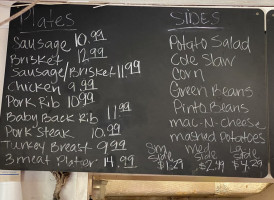 Plates
Sausage 10.99
Brisket 12.99
Sausage/Brisket 11.99
Chicken 9.99
Pork Rib 10.99
Baby Back Rib 11.99
Pork Steak 10.99
Turkey Breast 9.99
3 meat Plater 14.99
SIDES
Potato Salad
Cole Slaw
Corn
Green Beans
Pinto Beans
mac-N-Cheese
mashed Potatoes
Sm. side $1.29
med side $2.49
Lg side $4.29